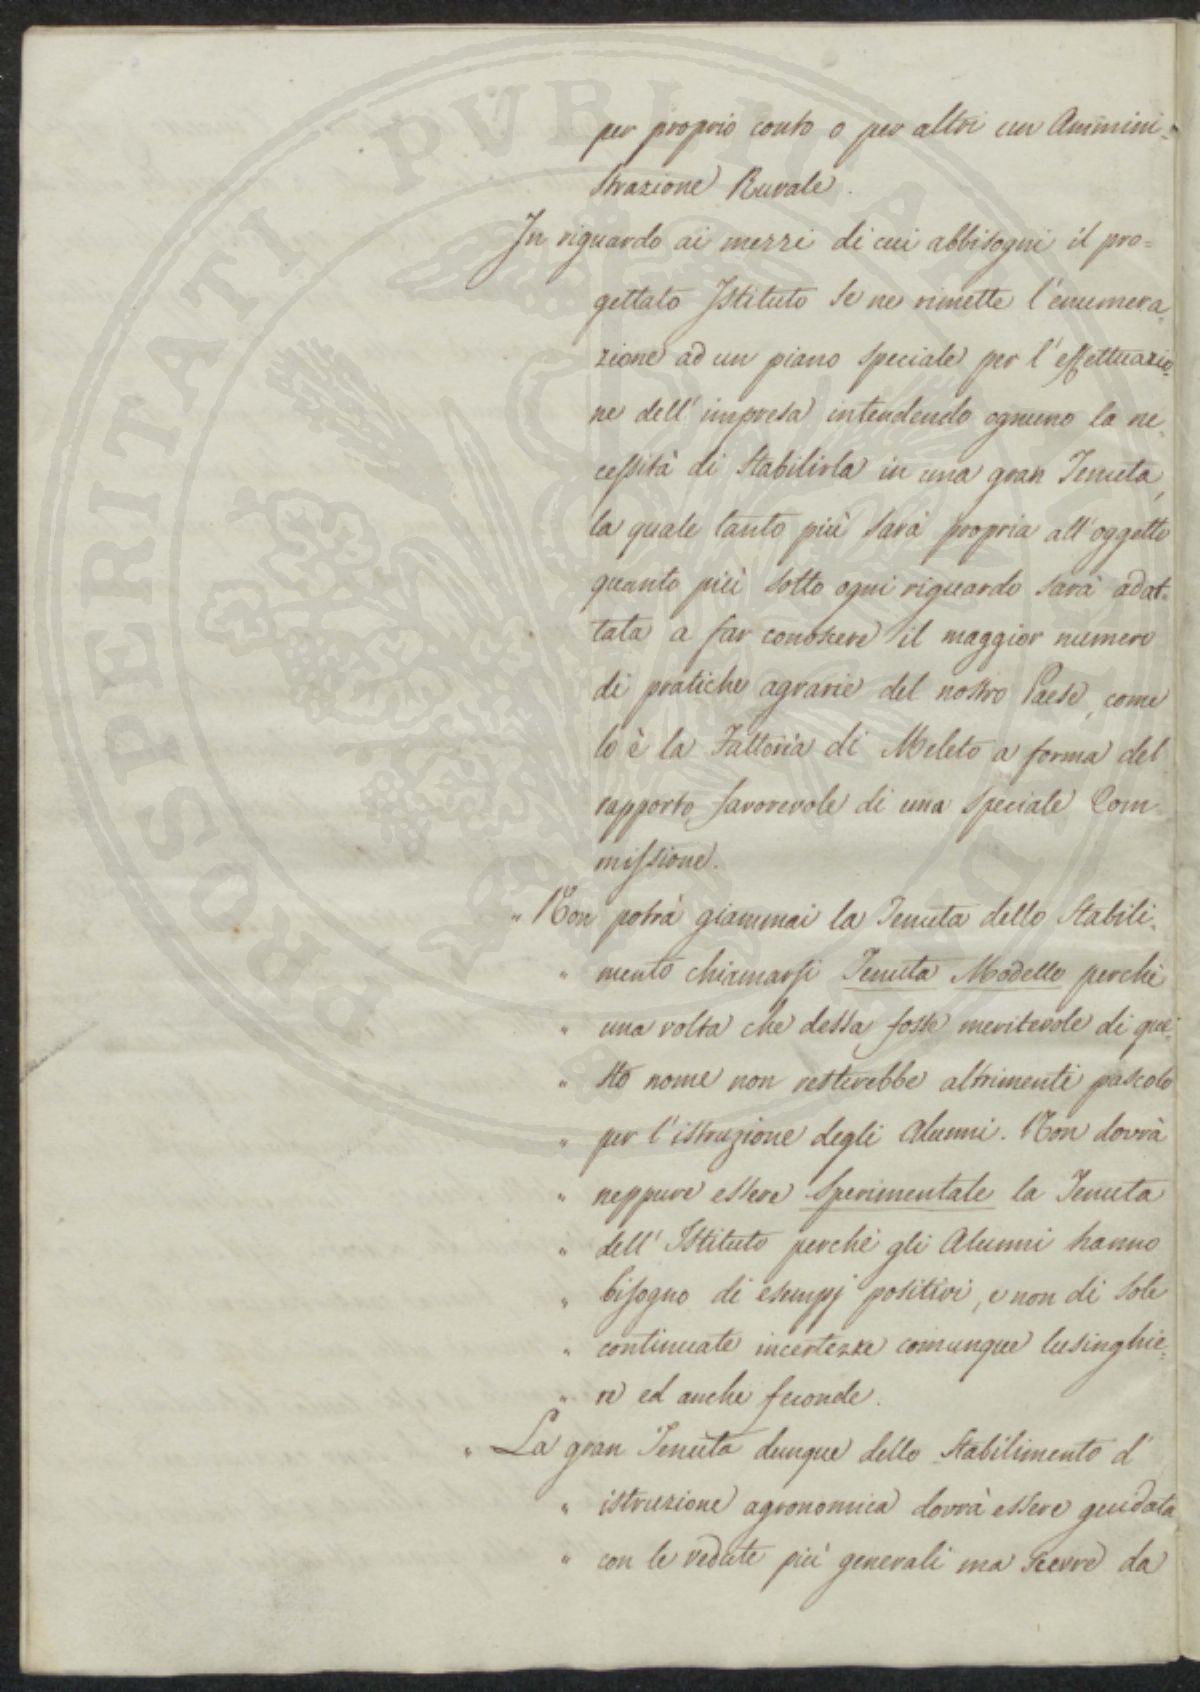 per proprio conto o per altri un Ammini=
strazione Rurale.
In riguardo ai mezzi di cui abbisogni il pro=
gettato Istituto se ne rimette l'enumera=
zione ad un piano speciale per l'effettuazio=
ne dell'impresa intendendo ognuno la ne=
cessità di stabilirla in una gran Tenuta,
la quale tanto più sarà propria all'oggetto
quanto più sotto ogni riguardo sarà adat=
tata a far conoscere il maggior numero
di pratiche agrarie del nostro Paese, come
lo è la Fattoria di Meleto a forma del
rapporto favorevole di una speciale Com=
missione.
" Non potrà giammai la Tenuta dello Stabili=
" mento chiamarsi Tenuta Modello perchè
" una volta che dessa fosse meritevole di que=
" sto nome non resterebbe altrimenti pascolo
" per l'istruzione degli Alunni. Non dovrà
" neppure essere Sperimentale la Tenuta
" dell'Istituto perchè gli Alunni hanno
" bisogno di esempj positivi, e non di sole
" continuate incertezze comunque lusinghie=
" re ed anche feconde.
" La gran Tenuta dunque dello Stabilimento d'
" istruzione agronomica dovrà essere guidata
" con le vedute più generali ma scevre da
PROSPERITATI PVBLICAE AVGENDAE